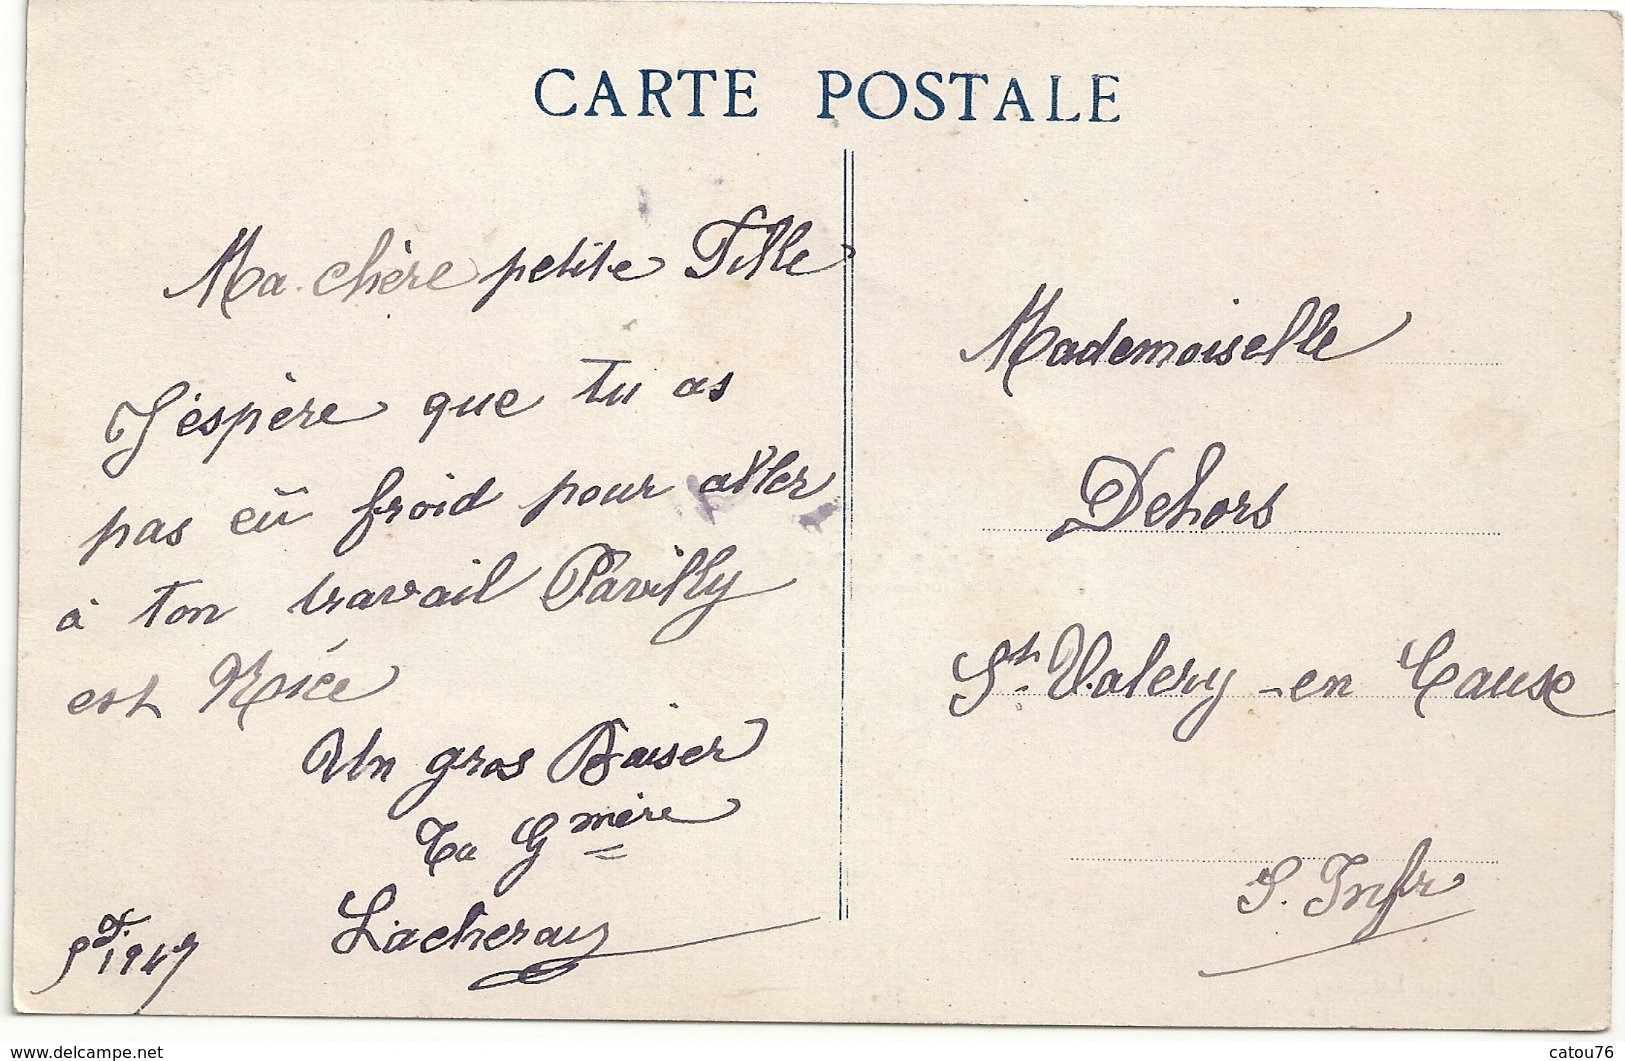 CARTE POSTALE
Ma chère petite Fille
J'éspère que tu as
pas eû froid pour aller
à ton travail Pavilly
est
Un gros Baiser
Ta G mère
Lacheray
1947
Mademoiselle
Dehors
St. Valery - en Cause
S. Infr
www.delcampe.net
catou76